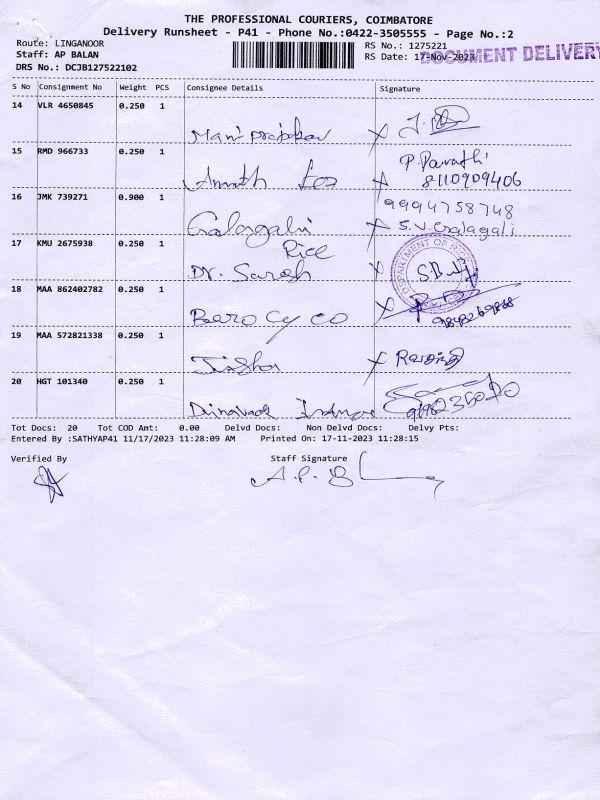 THE PROFESSIONAL COURIERS, COIMBATORE
Delivery Runsheet - P41 - Phone No.:0422-3505555 - Page No.:2
Route: LINGANOOR
RS No.: 1275221
Staff: AP BALAN
RS Date: 17-Nov-2023
DOCUMENT DELIVERY
DRS No.: DCJB127522102
S No Consignment No Weight PCS Consignee Details Signature
14 VLR 4650845 0.250 1
15 RMD 966733 0.250 1
P. Parathi
8110909406
16 JMK 739271 0.900 1
9994758748
Galagali S.V. Galagali
Rice
17 KMU 2675938 0.250 1
DEPARTMENT OF
Dr. Saresh
18 MAA 862402782 0.250 1
Bero Cy CO
19 MAA 572821338 0.250 1
20 HGT 101340 0.250 1
Tot Docs: 20 Tot COD Amt: 0.00 Delvd Docs: Non Delvd Docs: Delvy Pts:
Entered By :SATHYAP41 11/17/2023 11:28:09 AM Printed On: 17-11-2023 11:28:15
Verified By Staff Signature